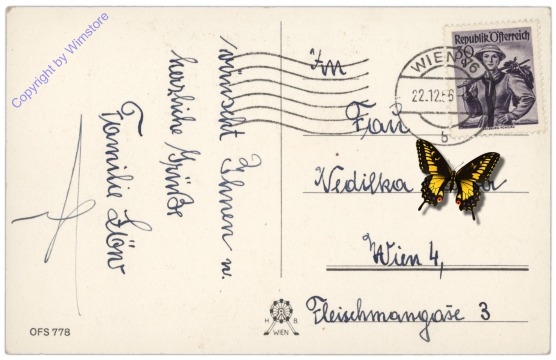 Copyright by Wimstore
wünscht Ihnen u.
herzliche Grüße
Familie
OFS 778
H. B.
WIEN
Republik Österreich
30
WIEN
22.12.56
b
An
Frau
Wien 4,
Fleischmangaße 3